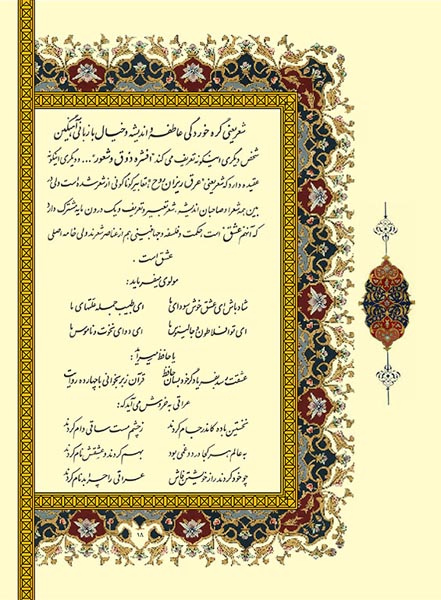 شعر یعنی گره خوردگی عاطفه و اندیشه و خیال با زبانی آهنگین
شخص دیگری اینگونه تعریف می کند "افشره ذوق و شعور" ... و دیگری اینگونه
عقیده دارد که شعر یعنی "عرق ریزان روح" تعابیر گوناگونی از شعر شده است ولی در
بین همه شعرا و صاحبان اندیشه، شعر تفسیر و تعریف و یک درون مایه مشترک دارد
که آنهم عشق است حکمت و فلسفه و جهانبینی هم از عناصر شعرند ولی خامه اصلی
عشق است .
مولوی میفرماید :
شاد باش ای عشق خوش سودای ما ای طبیب جمله علتهای ما
ای تو افلاطون و جالینوس ما ای دوای نخوت و ناموس ما
یا حافظ میسراید :
عشقت رسد به فریاد گر خود بسان حافظ قرآن ز بر بخوانی با چارده روایت
عراقی به خروش می آید که :
نخستین باده کاندر جام کردند ز چشم مست ساقی وام کردند
به عالم هر کجا درد و غمی بود بهم کردند و عشقش نام کردند
چو خود کردند راز خویشتن فاش عراقی را چرا بدنام کردند
۱۸